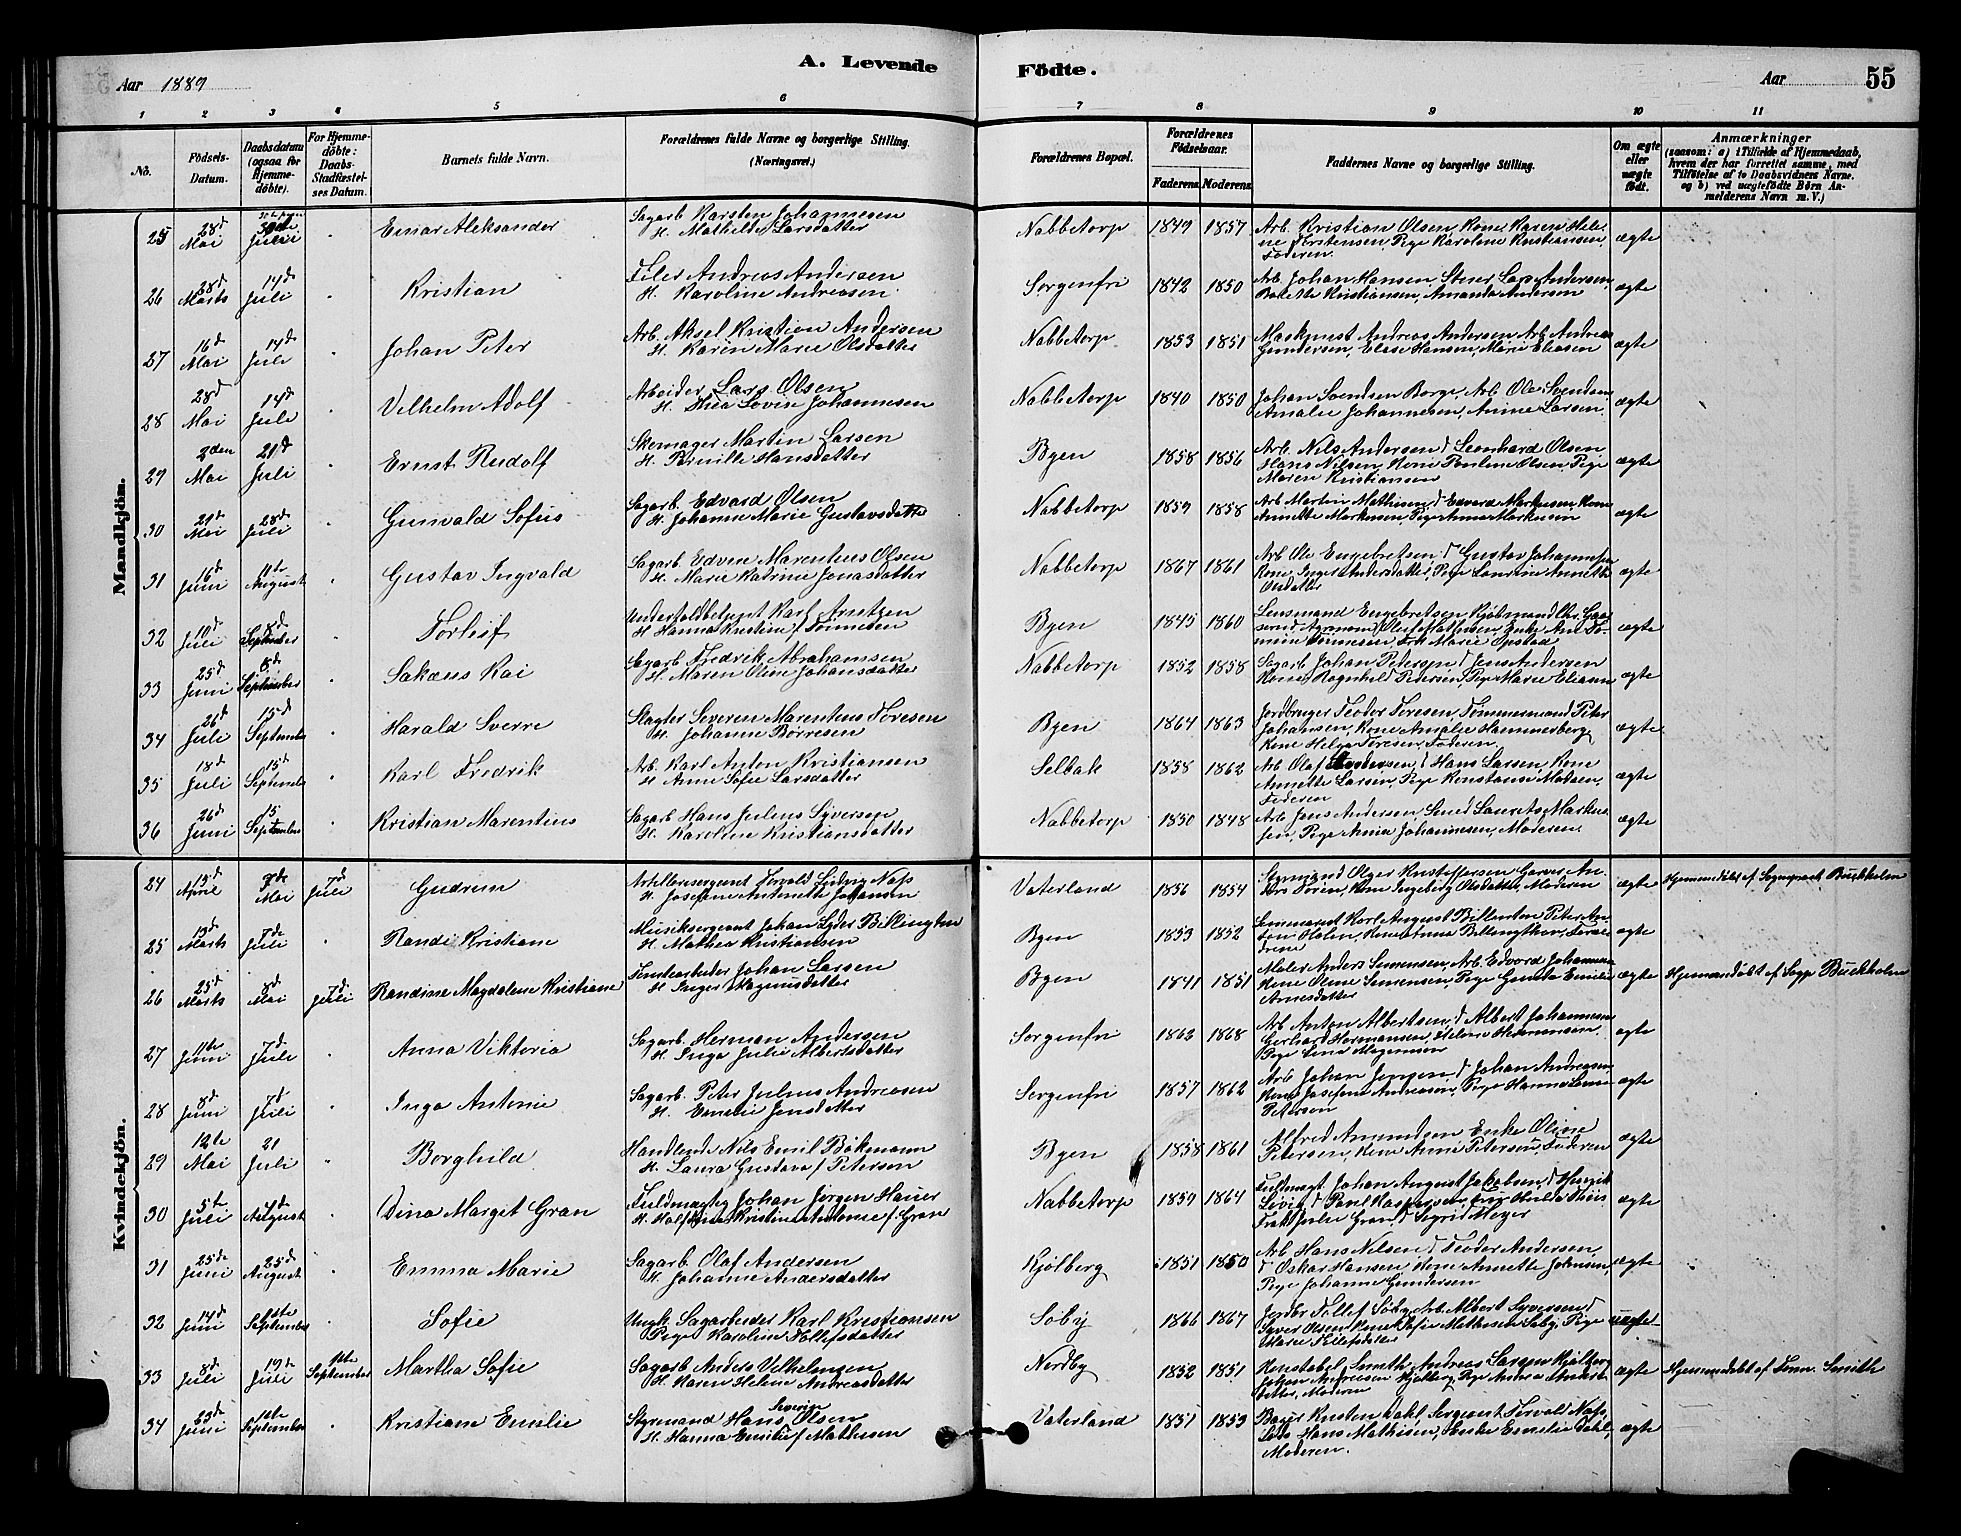 A. Levende Födte.
Aar 1889
Aar
55
1 2 3 4 5 6 7 8 9 10 11
No.
Födsels-Datum.
Daabsdatum (ogsaa for Hjemme-döbte).
For Hjemme-döbte: Daabs-Stadfæstel-ses Datum.
Barnets fulde Navn.
Forældrenes fulde Navne og borgerlige Stilling. (Næringsvei.)
Forældrenes Bopæl.
Forældrenes Födselsaar.
Faderens. Moderens.
Faddernes Navne og borgerlige Stilling.
Om ægte eller uægte født.
Anmærkninger
(saasom: a) i Tilfælde af Hjemmedaab, hvem der har forrettet samme, med Tilföielse af to Daabsvidners Navne, og b) ved uægtefödte Börn An-melderens Navn m. V.)
Mandkjön.
25 28d Mai Juli Einar Aleksander
Sagarb. Karsten Johannesen
H. Mathilde Larsdatter
Nabbetorp 1849 1857
Arb. Kristian Olsen, Kone Karen Hele-
ne Torstensen, Pige Karoline Kristiansen
Faderen.
ægte
26 28d Marts 14d Juli Kristian
Filer Andreas Andersen
H. Karoline Andreasen
Sorgenfri 1842 1850
Arb. Johan Hansen, Stuer Lars Andersen,
Kristiansen, Amanda Andersen
ægte
27 16d Mai 14d Juli Johan Peter
Arb. Aksel Kristian Andersen
H. Karen Marie Olsdatter
Nabbetorp 1853 1851
Maskinist Andreas Andersen, Arb. Andreas
Gundersen, Elise Hansen, Marie Eliasen
ægte
28 28d Mai 14d Juli Vilhelm Adolf
Arbeider Lars Olsen
H. Thea Lovise Johannesen
Nabbetorp 1840 1850
Johan Svendsen Borge, Arb. Ole Svendsen
Amalie Johannesen, Anine Larsen
ægte
29 2den Mai 21d Juli Ernst Rudolf
Skomager Martin Larsen
H. Pernille Hansdatter
Byen 1858 1856
Arb. Nils Andersen, d Leonhard Olsen
Hans Nilsen, Kone Pauline Olsen, Pige
Maren Kristiansen
ægte
30 21d Mai 28d Juli Gunvald Sofus
Sagarb. Edvard Olsen
H. Johanne Marie Gustavsdatter
Nabbetorp 1859 1858
Arb. Martin Mathisen, d Edvard Markusen, Kone
Annette Markusen, Pige Anna Markusen
ægte
31 Juni 11te August Gustav Ingvald
Sagarb. Edvin Marentius Olsen
H. Maren Katrine Jonasdatter
Nabbetorp 1867 1861
Arb. Ole Engebretsen, d Gustav Johannesen
Kone Inger Andersdatter, Pige Laurine Annette
Olsdatter
ægte
32 10d Juli 8d September Torleif
Underfoldbetjent Karl Arntzen
H. Hanna Kristine f. Tønnesen
Byen 1845 1860
Lensmand Engebretsen, Kjøbmand
Olaf Mathisen, Enke
Tønnesen, Frk Marie Opstad
ægte
33 25d Juni 8d September Sakæus Kai
Sagarb. Fredrik Abrahamsen
H. Maren Oline Johansdatter
Nabbetorp 1852 1858
Sagarb. Johan Petersen, d Jens Andersen
Kone Ragnhild Petersen, Pige Marie Eliasen
ægte
34 26d Juli 15d September Harald Sverre
Slagter Severin Marentius Toresen
H. Johanne Børresen
Byen 1864 1863
Jordbruger Teodor Toresen, Tømmermand Peter
Johansen, Kone Amalie Hammerberg,
Kone Helga Toresen, Faderen.
ægte
35 18d Juli 15d September Karl Fredrik
Arb. Karl Anton Kristiansen
H. Anne Sofie Larsdatter
Selbak 1858 1862
Arb. Olaf Andersen, d Hans Larsen, Kone
Annette Larsen, Pige Konstanse Madsen,
Faderen
ægte
36 26d Juni 15 September Kristian Marentius
Sagarb Hans Julius Syversen
H. Karoline Kristiansdatter
Nabbetorp 1850 1848
Arb Jens Andersen, Smed Laurits Marku-
sen, Pige Anna Johannesen, Moderen.
ægte
Kvindekjön.
24 13d April Mai 7d Juli Gudrun
Artillerisergeant Torvald Ludvig Næss
H. Josefine Antonette Johansen
Vaterland 1856 1854
Styrmand Olger Kristoffersen, Garver An-
ders Toren, Kone Ingeborg Olsdatter, Moderen
ægte
Hjemmedøbt af Sognepræst Buchholm
25 13d Marts 7de Juli Randi Kristiane
Musiksergeant Johan Lyder Billington
H. Mathea Kristiansen
Byen 1853 1852
Karl August Billington, Peter An-
ton Holen, Kone Anne Billington, Fa-
deren
ægte
26 25d Marts 8d Mai 7d Juli Randine Magdalene Kristiane
Tomtearbeider Johan Larsen
H. Inger Magnusdatter
Byen 1841 1851
Maler Anders Simensen, Arb. Edvard Johannesen
Kone Oline Simensen, Pige Emilie
Arnesdatter
ægte
Hjemmedøbt af Sogp Buchholm
27 11te Juni 7d Juli Anna Viktoria
Sagarb. Herman Andersen
H. Inga Julie Albertsdatter
Sorgenfri 1862 1868
Arb. Anton Albertsen, d Albert Johannesen
Gerhard Hermansen, Helene Hermansen,
Pige Lina Mogensen
ægte
28 8d Juni 7d Juli Inga Antonie
Sagarb. Peter Julius Andreasen
H. Emelie Jensdatter
Sorgenfri 1857 1862
Arb. Johan Jensen, d Johan Andreasen
Kone Josefine Andreasen, Pige Hanna Lovise
Petersen
ægte
29 12te Mai 21 Juli Borghild
Handlende Nils Emil Bökmann
H. Laura Gustava f Petersen
Byen 1858 1861
Alfred Amundsen, Enke Oline
Petersen, Kone Anna Petersen, Faderen
ægte
30 5te Juli August Dina Margit Gran
Fuldmægtig Johan Jørgen Hauer
H. Kristine Antonie f. Gran
Nabbetorp 1859 1864
Fuldmægt. Johan August Jakobsen,
Løvig, d Paul Kaspersen, Hulda Thiis
Frøk Julie Gran, d Sigrid Meyer
ægte
31 25de Juni 25d August Emma Marie
Sagarb. Olaf Andersen
H. Johanne Andersdatter
Kjølberg 1851 1850
Arb. Hans Nilsen, d Teodor Andersen,
d Oskar Hansen, Kone Annette Johnsen,
Pige Johanne Gundersen
ægte
32 14d Juni 1ste September Sofie
Ungk. Sagarbeider Karl Kristiansen
Pige Karoline Tollefsdatter
Søby 1866 1867
Jordbr. Tollef Søby, Arb. Albert Syversen, d
Syver Olsen, Kone Sofie Mathisen Søby, Pige
Marie Tollefsdatter
uægte
33 8d Juli 19de Juli 1ste September Martha Sofie
Sagarb. Anders Vilhelmsen
H. Karen Helene Andreasdatter
Nordby 1852 1851
Konstabel Smith, Andreas Larsen Kjølberg,
Johan Andreasen Kjølberg, Pige Andrea Anders-
datter, Moderen
ægte
Hjemmedøbt af Smith
34 23d Juni September Kristiane Emilie
Styrmand Hans Severin Olsen
H. Hanna Emilie f Mathisen
Vaterland 1851 1853
Kristen Dahl, Sergeant Torvald Næss,
Lods Hans Mathisen, Enke Emilie Dahl,
Moderen.
ægte